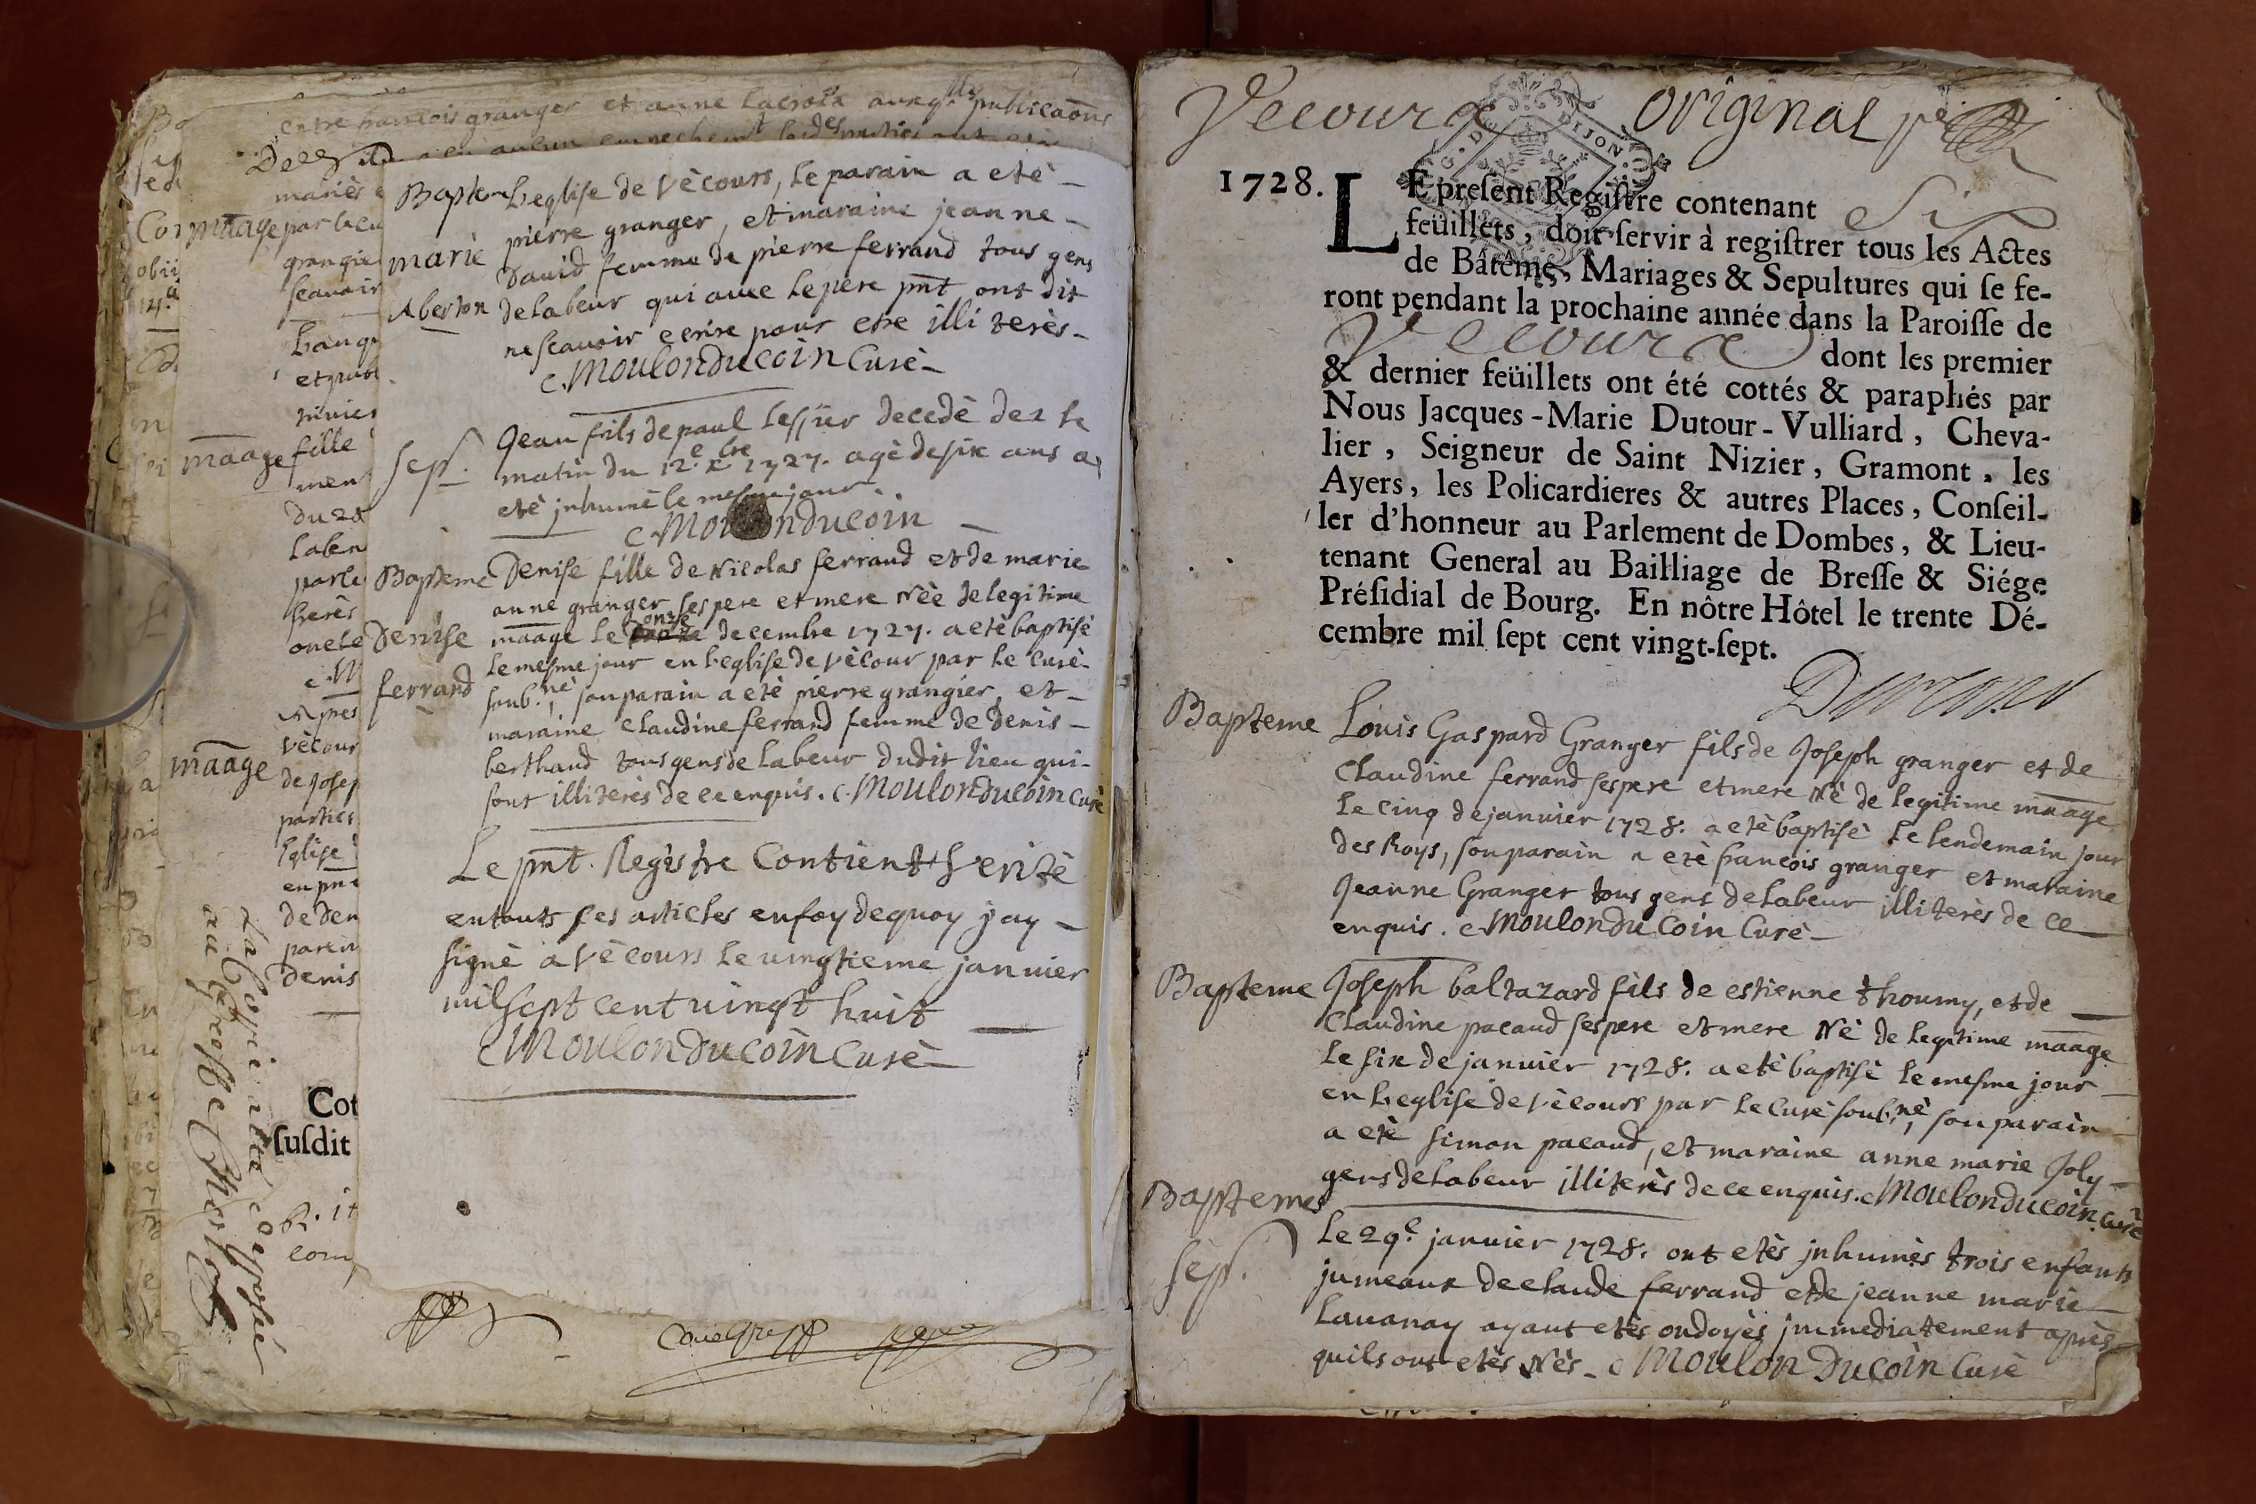 entre francois granger et anne Lacroix auxq.lls publicaons
mariès
maage par le cu
grangie
scavoir
Langu
et quat
rivier
maage fille
men
du 20
Laben
parle
herès
onete
Apres
vècour
maage
de Josep
parties
Leglise
en pnt
de den
parein
Denis
Cot
susdit
Bapteme Leglise de vècours, Le parain a etè
pierre granger, et maraine jeanne
marie David femme de pierre ferrand tous gens
Aberton de Labeur qui avec Le père pnt ont dit
ne scavoir ecrire pour etre illiterès
C. Moulonducoin Curè
Jean fils de paul Tessier decedè des Le
sep. matin du 12.e xbre 1727. agè de six ans a
etè jnhumè le mesme jour.
C. Moulonducoin
Bapteme Denise fille de Nicolas ferrand et de marie
anne granger ses pere et mere Nèe de legitime
Denise maage Le onze decembre 1727. a etè baptisè
Le mesme jour en Leglise de vècour par Le Curè
ferrand soub.nè, son parain a etè pierre grangier, et
maraine Claudine ferrand femme de Denis
berthaud tous gens de Labeur dudit Lieu qui
sont illiterès de ce enquis. C. Moulonducoin Curè
Le pnt. Registre Contient verité
en touts ses articles en foy de quoy jay
signè a vècours Le vingtieme janvier
mil sept cent vingt huit
C Moulonducoin Curè
Vecours original
1728. LE present Registre contenant six
feüillets, doit servir à registrer tous les Actes
de Bâtême, Mariages & Sepultures qui se fe-
ront pendant la prochaine année dans la Paroisse de
Vecours dont les premier
& dernier feüillets ont été cottés & paraphés par
Nous Jacques-Marie Dutour-Vulliard, Cheva-
lier, Seigneur de Saint Nizier, Gramont, les
Ayers, les Policardieres & autres Places, Conseil-
ler d'honneur au Parlement de Dombes, & Lieu-
tenant General au Bailliage de Bresse & Siége
Présidial de Bourg. En nôtre Hôtel le trente Dé-
cembre mil sept cent vingt-sept.
Dutour
Bapteme Louis Gaspard Granger fils de Joseph granger et de
Claudine ferrand ses pere et mere Nè de legitime maage
Le cinq de janvier 1728. a etè baptisè Le lendemain jour
des Roys, son parain a etè francois granger et maraine
Jeanne Granger tous gens de Labeur illiterès de ce
enquis. C Moulondu Coin Curè
Bapteme Joseph baltazard fils de estienne thoumy, et de
Claudine pacaud ses pere et mere Nè de legitime maage
Le six de janvier 1728. a etè baptisè Le mesme jour
en Leglise de vècours par Le Curè soub.nè, son parain
a etè simon pacaud, et maraine anne marie Joly
gens de Labeur illiterès de ce enquis. C Moulonducoin Curè
Baptemes Le 29.e janvier 1728. ont etès jnhumès trois enfants
sep. jumeaux de claude ferrand et de jeanne marie
Lavanay ayant etès ondoyès jmmediatement après
quils ont etès Nès. C Moulon Ducoin Curè